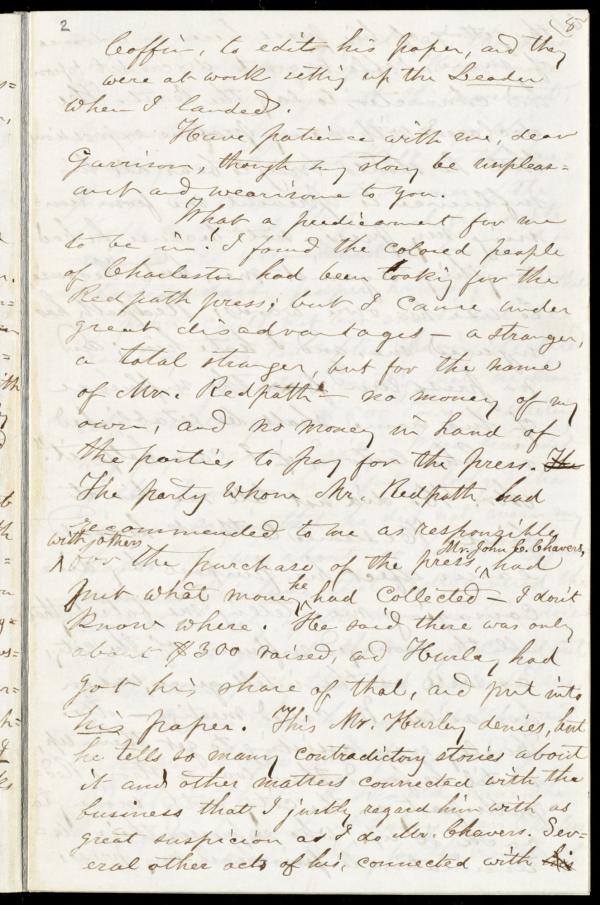 2
8
Coffin, to edit his paper, and they
were at work setting up the Leader
when I landed.
Have patience with me, dear
Garrison, though my story be unpleas=
ant and wearisome to you.
What a predicament for me
to be in! I found the colored people
of Charleston had been looking for the
Redpath press; but I came under
great disadvantages — a stranger,
a total stranger, but for the name
of Mr. Redpath — no money of my
own, and no money in hand of
the parties to pay for the press. The
The party whom Mr. Redpath had
recommended to me as responsible
with others
for the purchase of the press, Mr. John C. Chavers, had
put what money he had collected — I don't
know where. He said there was only
about $300 raised, and Hurley had
got his share of that, and put into
his paper. This Mr. Hurley denies, but
he tells so many contradictory stories about
it and other matters connected with the
business that I justly regard him with as
great suspicion as I do Mr. Chavers. Sev=
eral other acts of his, connected with his